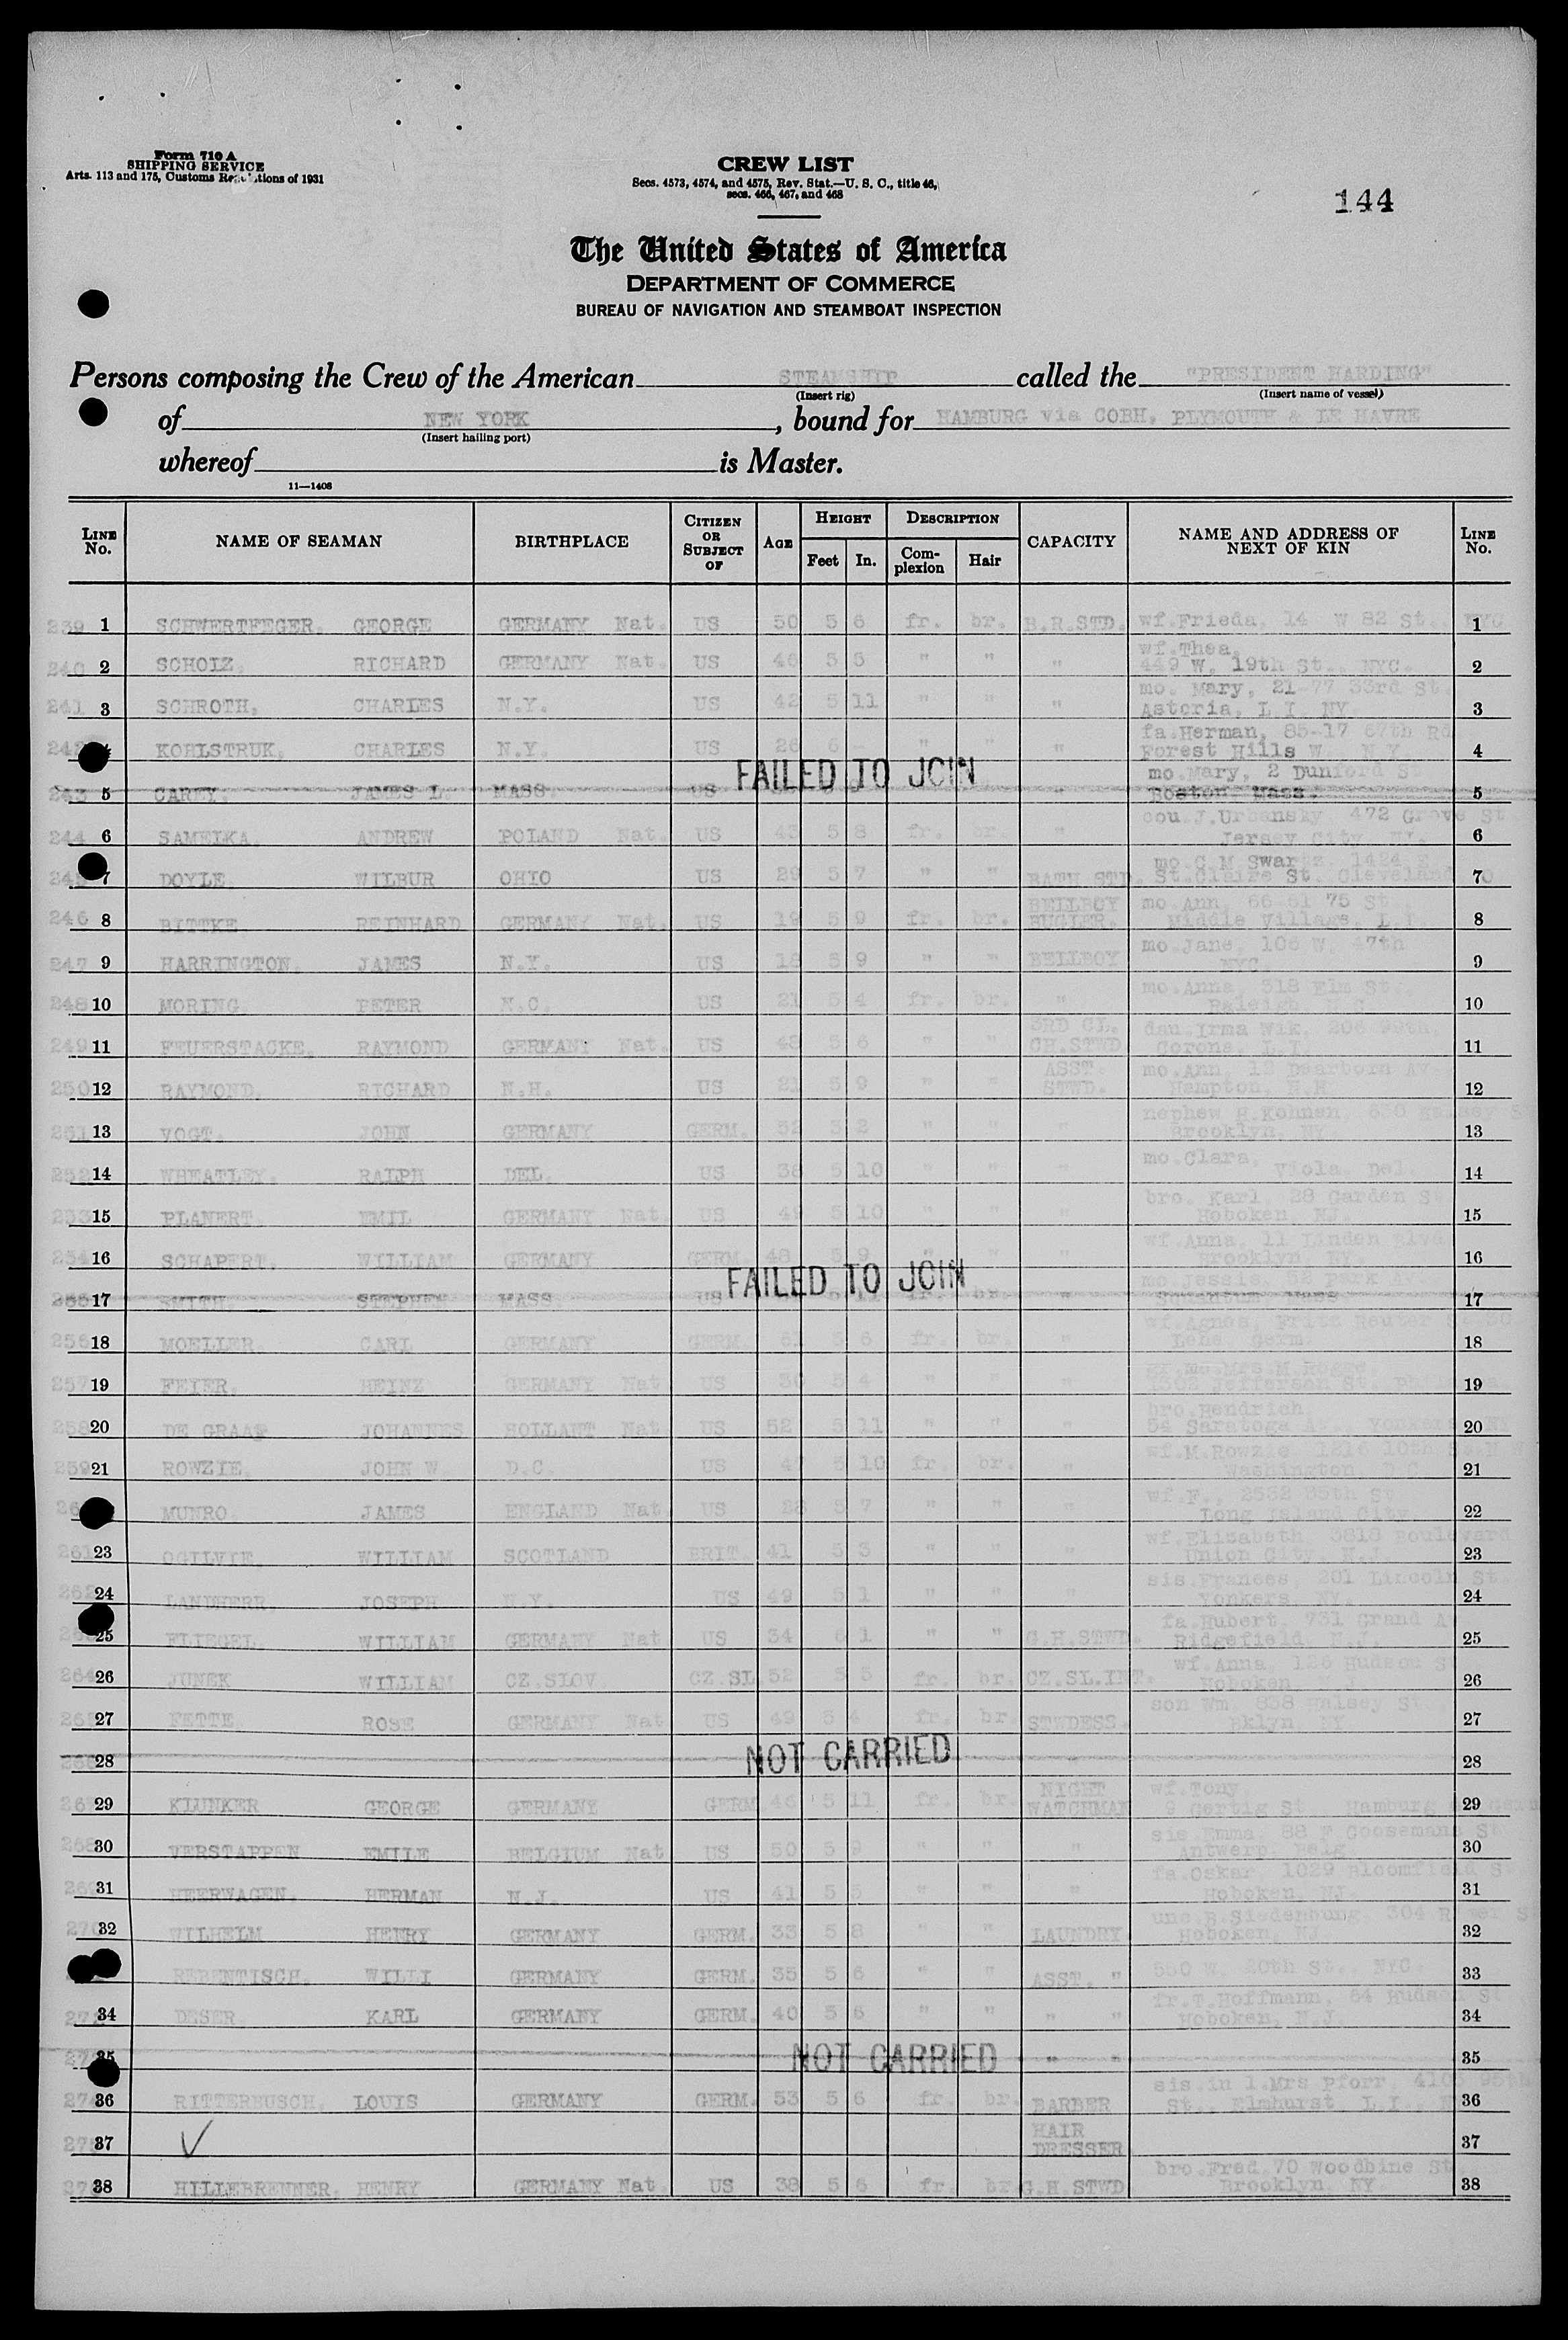 Form 710 A
SHIPPING SERVICE
Arts. 113 and 175, Customs Regulations of 1931
CREW LIST
Secs. 4573, 4574, and 4575, Rev. Stat.—U. S. C., title 46,
secs. 466, 467, and 468
144
The United States of America
DEPARTMENT OF COMMERCE
BUREAU OF NAVIGATION AND STEAMBOAT INSPECTION
Persons composing the Crew of the American STEAMSHIP called the "PRESIDENT HARDING"
(Insert rig) (Insert name of vessel)
of NEW YORK, bound for HAMBURG via COBH, PLYMOUTH & LE HAVRE
(Insert hailing port)
whereof is Master.
11—1408
LINE No. NAME OF SEAMAN BIRTHPLACE CITIZEN OR SUBJECT OF AGE HEIGHT Feet In. DESCRIPTION Complexion Hair CAPACITY NAME AND ADDRESS OF NEXT OF KIN LINE No.
239 1 SCHWERTFEGER, GEORGE GERMANY Nat. US 50 5 6 fr. br. B.R.STD. wf.Frieda, 14 W 82 St. NYC 1
240 2 SCHOLZ, RICHARD GERMANY Nat. US 46 5 5 " " " wf.Thea, 449 W. 19th St., NYC. 2
241 3 SCHROTH, CHARLES N.Y. US 42 5 11 " " " mo. Mary, 21-77 33rd St. Astoria, L.I. NY. 3
242 4 KOHLSTRUK, CHARLES N.Y. US 26 6 - " " " fa.Herman, 85-17 67th Rd Forest Hills W. N.Y. 4
FAILED TO JOIN
243 5 CAREY, JAMES L. MASS. US " mo.Mary, 2 Dunford St Boston Mass. 5
244 6 SAMELKA, ANDREW POLAND Nat. US 43 5 8 fr. br. " cou.J.Urbansky, 472 Grove St Jersey City, NJ. 6
245 7 DOYLE, WILBUR OHIO US 29 5 7 " " BATH STD. mo.C.M.Swartz, 1424 E St.Claire St. Cleveland O 7
246 8 BITTKE, REINHARD GERMANY Nat. US 19 5 9 fr. br. BELLBOY BUGLER. mo Ann, 66-61 75 St., Middle Village, L.I. 8
247 9 HARRINGTON, JAMES N.Y. US 18 5 9 " " BELLBOY mo.Jane, 106 W. 47th NYC. 9
248 10 MORING, PETER N.C. US 21 5 4 fr. br. " mo.Anna, 318 Elm St., Raleigh, N.C. 10
249 11 FEUERSTACKE, RAYMOND GERMANY Nat. US 48 5 6 " " 3RD CL. CH.STWD dau.Irma Wik, 206 99th, Corona, L.I. 11
250 12 RAYMOND, RICHARD N.H. US 21 5 9 " " ASST. STWD. mo.Ann, 12 Dearborn Av Hampton, N.H. 12
251 13 VOGT, JOHN GERMANY GERM. 52 5 2 " " " nephew H.Kohnen, 830 Halsey St Brooklyn, NY. 13
252 14 WHEATLEY, RALPH DEL. US 38 5 10 " " " mo.Clara, Viola, Del. 14
253 15 PLANERT, EMIL GERMANY Nat. US 49 5 10 " " " bro. Karl, 28 Garden St Hoboken, NJ. 15
254 16 SCHAPERT, WILLIAM GERMANY GERM. 48 5 9 " " " wf.Anna, 11 Linden Blvd Brooklyn, NY. 16
FAILED TO JOIN
255 17 SMITH, STEPHEN MASS. US 11 fr. br. " mo.Jessie, Squantum, Mass 17
256 18 MOELLER, CARL GERMANY GERM. 61 5 6 fr. br. " wf.Agnes, Fritz Reuter St 30 Lehe, Germ. 18
257 19 FEIER, HEINZ GERMANY Nat US 30 5 4 " " " gr.mo.Mrs M.Rogge 1302 Jefferson St. 19
258 20 DE GRAAF JOHANNES HOLLANT Nat US 52 5 11 " " " bro.Hendrich, 54 Saratoga Av., Yonkers, NY 20
259 21 ROWZIE, JOHN W. D.C. US 47 5 10 fr. br. " wf.M.Rowzie, 1216 10th St.N.W Washington, D.C. 21
26 MUNRO JAMES ENGLAND Nat. US 28 5 7 " " " wf.F., 2532 35th St Long Island City. 22
261 23 OGILVIE, WILLIAM SCOTLAND BRIT. 41 5 3 " " " wf.Elizabeth 3818 Boulevard Union City, N.J. 23
262 24 LANDHERR, JOSEPH N.Y. US 49 5 1 " " " sis.Frances, 201 Lincoln St. Yonkers, NY. 24
25 FLIEGEL, WILLIAM GERMANY Nat US 34 6 1 " " G.H.STWD. fa.Hubert, 731 Grand Av Ridgefield, N.J. 25
264 26 JUNEK WILLIAM CZ.SLOV. CZ.SL 52 5 5 fr. br. CZ.SL.INT. wf.Anna, 126 Hudson St Hoboken, N.J. 26
265 27 FETTE, ROSE GERMANY Nat US 49 5 4 fr. br. STWDESS. son Wm. 838 Halsey St Bklyn, NY 27
28 NOT CARRIED " 28
267 29 KLUNKER GEORGE GERMANY GERM 46 5 11 fr. br. NIGHT WATCHMAN wf.Tony, 9 Gertig St., Hamburg Germ 29
268 30 VERSTAPPEN EMILE BELGIUM Nat US 50 5 9 " " " sis.Emma, 88 F Coosemans St Antwerp, Belg. 30
269 31 HEERWAGEN, HERMAN N.J. US 41 5 5 " " " fa.Oskar, 1029 Bloomfield St Hoboken, NJ. 31
270 32 WILHELM HENRY GERMANY GERM. 33 5 8 " " LAUNDRY unc.B.Siedenburg, 304 River St Hoboken, NJ. 32
REBENTISCH, WILLI GERMANY GERM. 35 5 6 " " ASST. " 550 W. 40th St., NYC. 33
272 34 DESER, KARL GERMANY GERM. 40 5 6 " " " " fr.T.Hoffmann, 64 Hudson St Hoboken, N.J. 34
273 35 NOT CARRIED " " 35
274 36 RITTERBUSCH, LOUIS GERMANY GERM. 53 5 6 fr. br. BARBER sis.in l.Mrs Pforr, 4105 95th St., Elmhurst, L.I., 36
275 37 HAIR DRESSER 37
276 38 HILLEBRENNER, HENRY GERMANY Nat. US 38 5 6 fr. br. G.H.STWD bro.Fred,70 Woodbine St Brooklyn, NY. 38